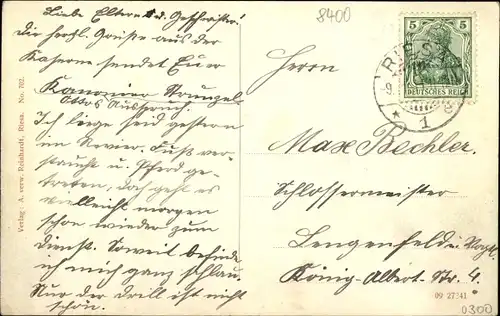 Liebe Eltern u. d. Geschwister!
Die herzl. Grüße aus der
Kaserne sendet Euer
Kanonier
Ottos Ausspruch:
Ich liege seid gestern
im Revier. Fuß ver-
staucht u. Pferd ge-
treten, das geht es
vielleicht morgen
schon wieder zum
Dienst. Soweit befinde
ich mich ganz schlau,
Nur der Drill ist nicht
schön.
Verlag: A. verw. Reinhardt, Riesa. No. 702.
8400
5 5
DEUTSCHES REICH
RIESA
-9.
* 1
Herrn
Max Bechler.
Schlossermeister
Lengenfeld i. Vogtl.
König-Albert-Str. 4.
09 27341
0300